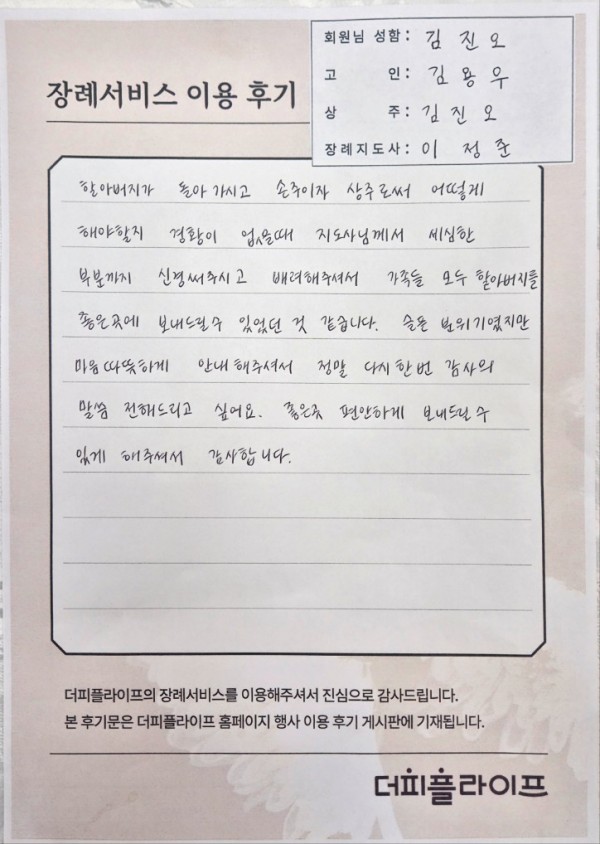 장례서비스 이용 후기
회원님 성함: 김진오
고 인: 김용우
상 주: 김진오
장례지도사: 이정준
할아버지가 돌아가시고 손주이자 상주로써 어떻게
해야할지 경황이 없을때 지도사님께서 세심한
부분까지 신경써주시고 배려해주셔서 가족들 모두 할아버지를
좋은곳에 보내드릴수 있었던 것 같습니다. 슬픈 분위기였지만
마음 따뜻하게 안내해주셔서 정말 다시한번 감사의
말씀 전해드리고 싶어요. 좋은곳 편안하게 보내드릴수
있게 해주셔서 감사합니다.
더피플라이프의 장례서비스를 이용해주셔서 진심으로 감사드립니다.
본 후기문은 더피플라이프 홈페이지 행사 이용 후기 게시판에 기재됩니다.
더피플라이프